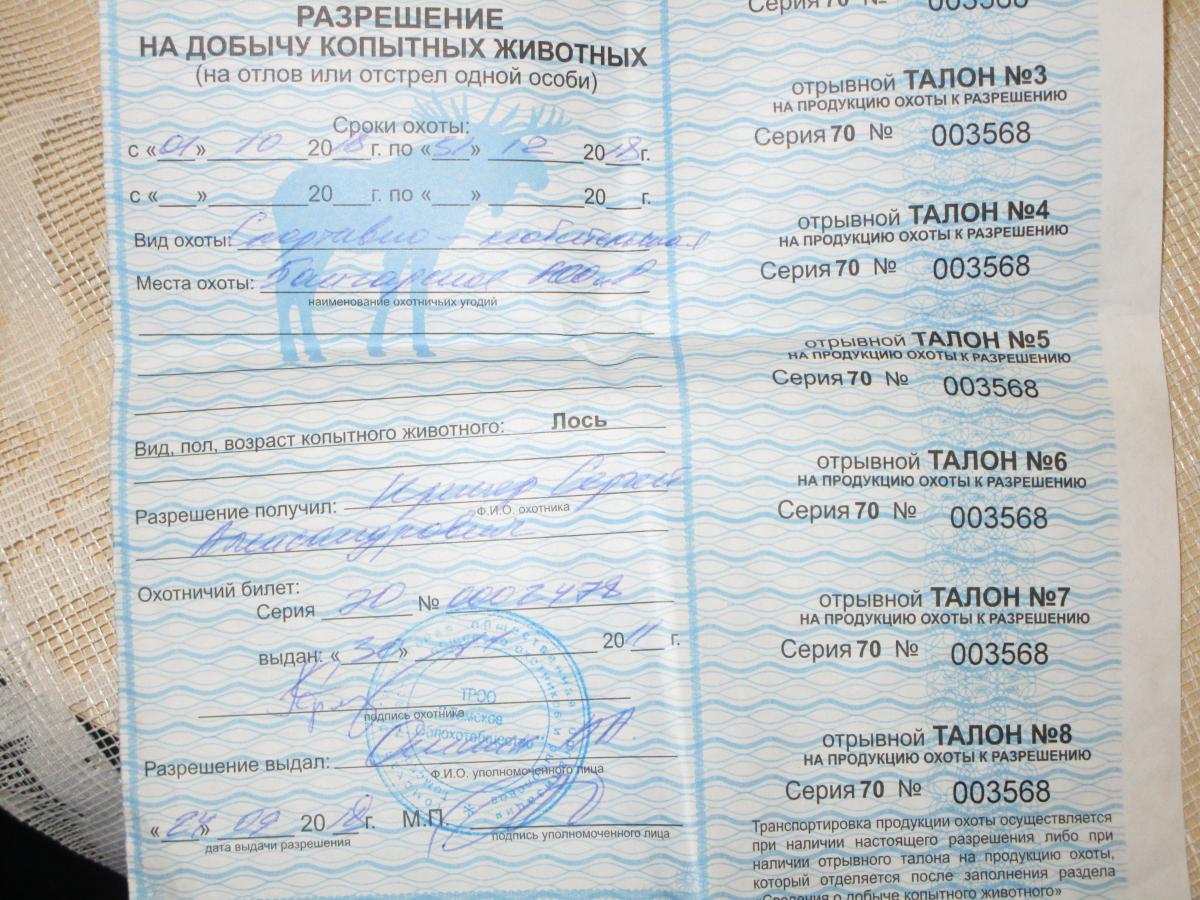 РАЗРЕШЕНИЕ
НА ДОБЫЧУ КОПЫТНЫХ ЖИВОТНЫХ
(на отлов или отстрел одной особи)
Сроки охоты:
с «01» 10 2018г. по «31» 12 2018г.
с «___»________20___г. по «___» ________20___г.
Вид охоты: Спортивно любительская
Места охоты:
наименование охотничьих угодий
Вид, пол, возраст копытного животного: Лось
Разрешение получил: Сергей
Ф.И.О. охотника
Александрович
Охотничий билет:
Серия 70 № 0002478
выдан: « » 2011 г.
подпись охотника
ТРОО
Томское
Облохотобщество
Разрешение выдал:
Ф.И.О. уполномоченного лица
«24» 09 2018г. М.П.
дата выдачи разрешения
подпись уполномоченного лица
Серия 70 № 003568
отрывной ТАЛОН №3
НА ПРОДУКЦИЮ ОХОТЫ К РАЗРЕШЕНИЮ
Серия 70 № 003568
отрывной ТАЛОН №4
НА ПРОДУКЦИЮ ОХОТЫ К РАЗРЕШЕНИЮ
Серия 70 № 003568
отрывной ТАЛОН №5
НА ПРОДУКЦИЮ ОХОТЫ К РАЗРЕШЕНИЮ
Серия 70 № 003568
отрывной ТАЛОН №6
НА ПРОДУКЦИЮ ОХОТЫ К РАЗРЕШЕНИЮ
Серия 70 № 003568
отрывной ТАЛОН №7
НА ПРОДУКЦИЮ ОХОТЫ К РАЗРЕШЕНИЮ
Серия 70 № 003568
отрывной ТАЛОН №8
НА ПРОДУКЦИЮ ОХОТЫ К РАЗРЕШЕНИЮ
Серия 70 № 003568
Транспортировка продукции охоты осуществляется
при наличии настоящего разрешения либо при
наличии отрывного талона на продукцию охоты,
который отделяется после заполнения раздела
«Сведения о добыче копытного животного»